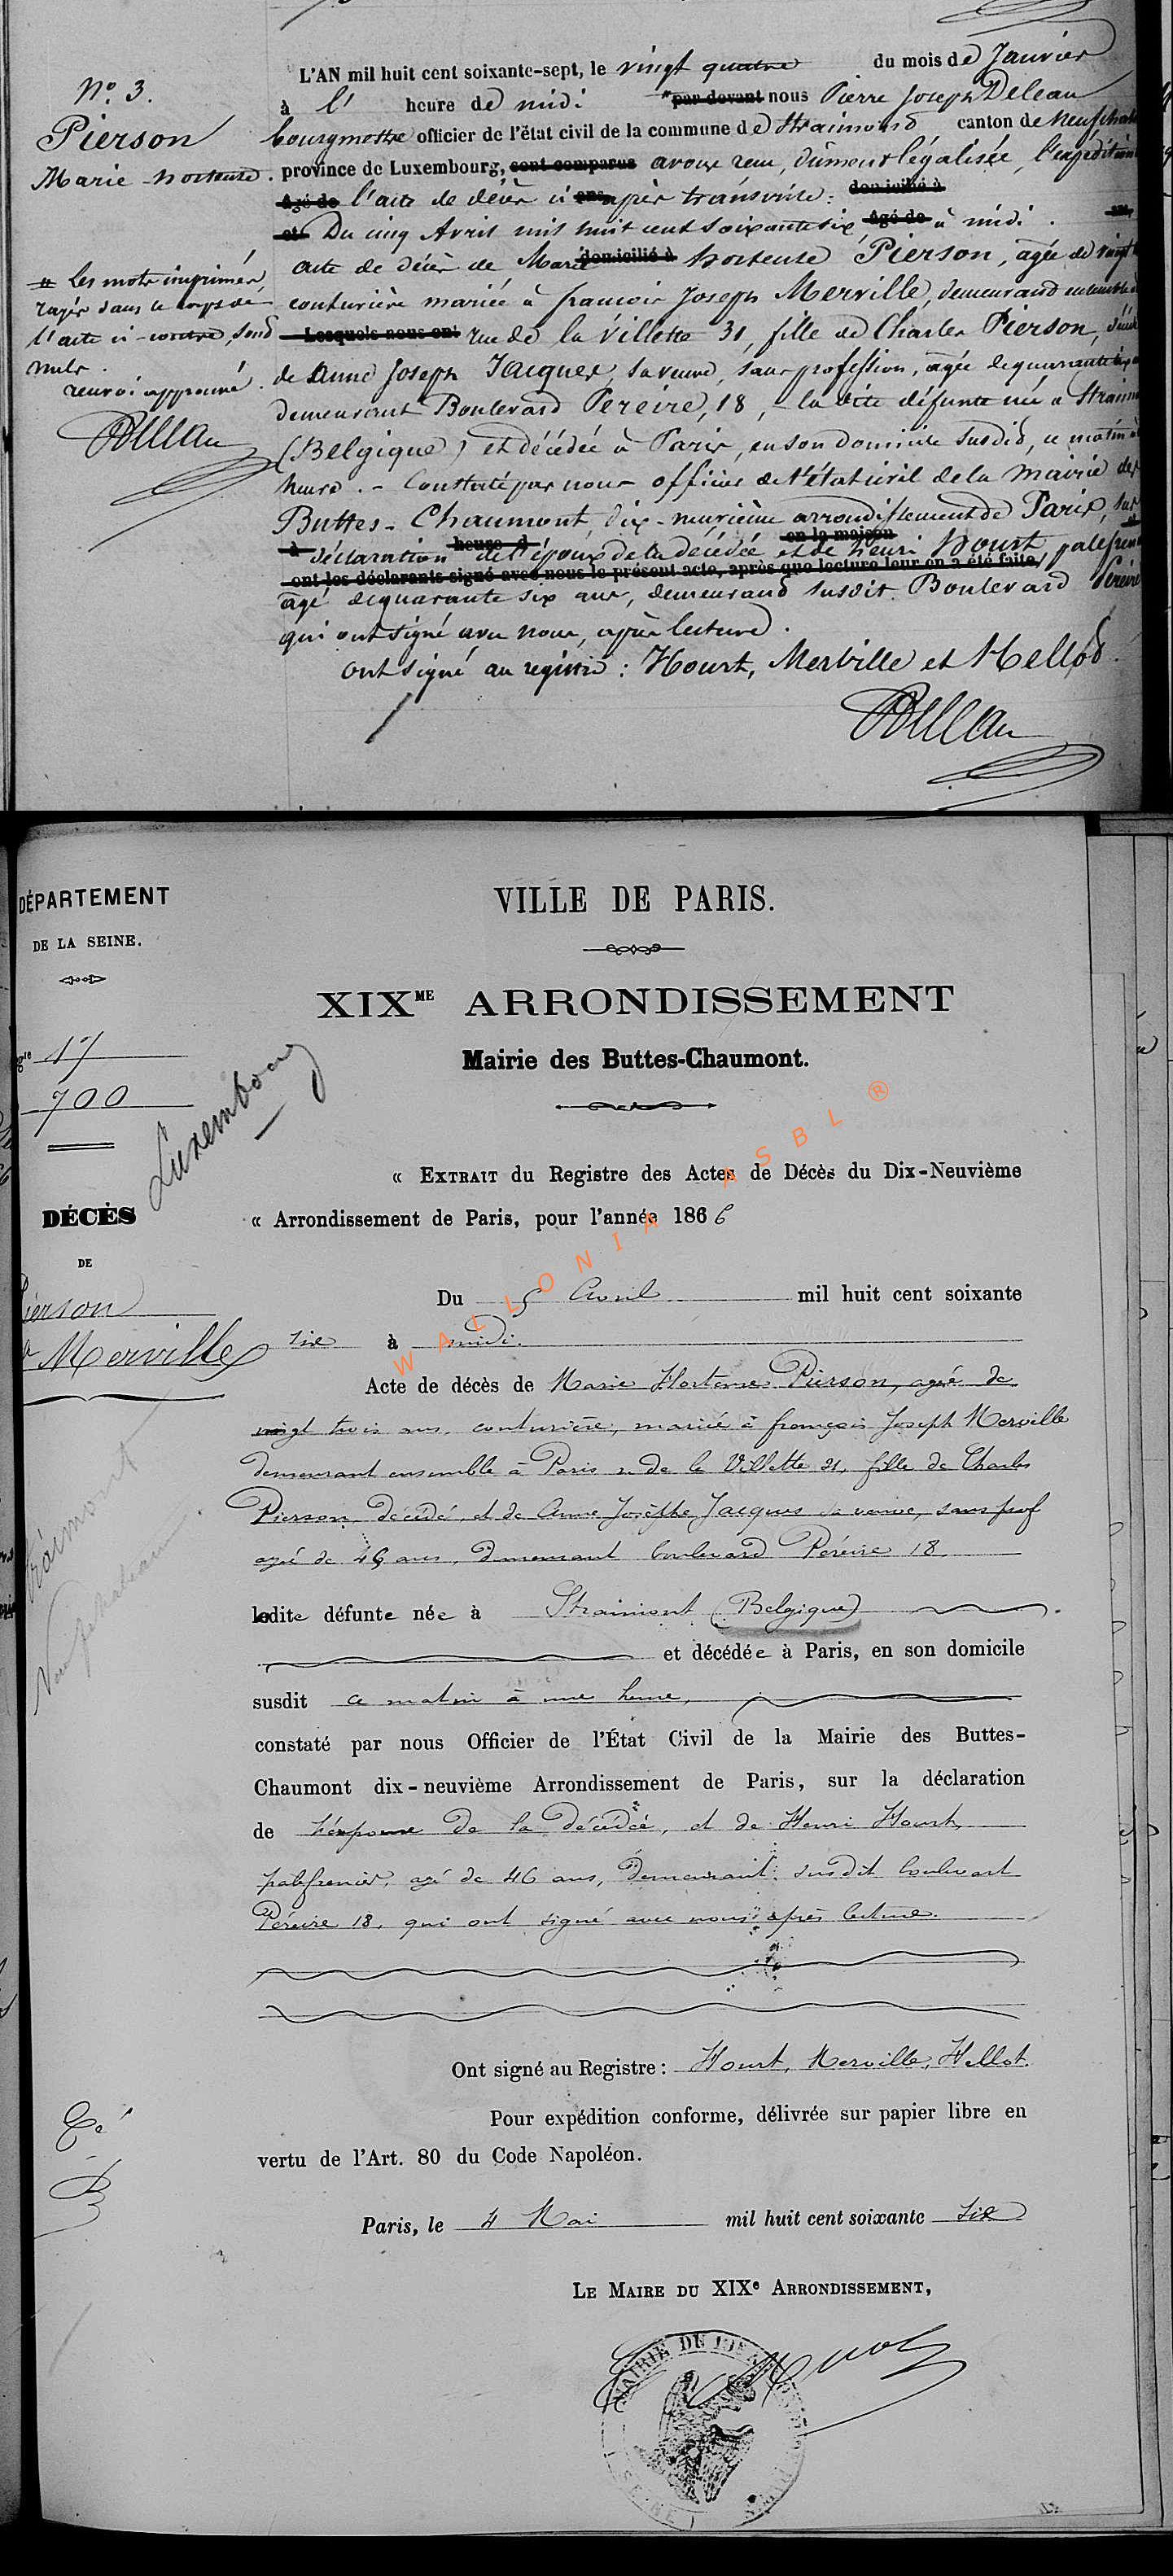 L'AN mil huit cent soixante-sept, le vingt quatre du mois de Janvier
N° 3. à l' heure de midi par devant nous Pierre Joseph Deleau
Pierson bourgmestre officier de l'état civil de la commune de Straimont canton de Neufchat
Marie hortense. province de Luxembourg, sont comparus avons reçu, dûment légalisée, l'expédition
âgé de l'acte de décès ci ans après transcrite : domicilié à
et Du cinq Avril mil huit cent soixante six âgé de à midi.
acte de décès de Marie domicilié à hortense Pierson, agée de vingt
Les mots imprimés couturière mariée à francois Joseph Merville, demeurand ensemble
rayés dans le corps de
l'acte ci-contre, sont Lesquels nous ont rue de la Villette 31, fille de Charles Pierson,
nuls.
renvoi approuvé. de Anne Joseph Jacques, sa veuve, sans profession, agée de quarante
PDeleau demeurant Boulevard Pereire, 18, la dite défunte née à Straim
(Belgique) et décédée à Paris, en son domicile susdit, ce matin à
heure. - Constaté par nous officier de l'état civil de la mairie des
Buttes-Chaumont, dix-neuvième arrondissement de Paris, sur
à déclaration heure d de l'époux de la décédée en la maison et de henri Hourt, palefren
ont les déclarants signé avec nous le présent acte, après que lecture leur en a été faite,
agé de quarante six ans, demeurand susdit Boulevard Péreire
qui ont signé avec nous, après lecture.
ont signé au registre : Hourt, Merville et Hellot.
PDeleau
DÉPARTEMENT
DE LA SEINE.
VILLE DE PARIS.
XIXME ARRONDISSEMENT
Mairie des Buttes-Chaumont.
17
700
Luxembourg
« EXTRAIT du Registre des Actes de Décès du Dix-Neuvième
DÉCÈS « Arrondissement de Paris, pour l'année 1866
DE
Pierson Du 5 Avril mil huit cent soixante
Merville six à midi.
Acte de décès de Marie Hortense Pierson, agée de
vingt trois ans, couturière, mariée à françois Joseph Merville
demeurant ensemble à Paris r. de la Villette 31, fille de Charles
Pierson, décédé, et de Anne Josèphe Jacques sa veuve, sans prof
agée de 46 ans, demeurant boulevard Péreire 18,
ladite défunte née à Straimont (Belgique)
et décédée à Paris, en son domicile
susdit ce matin à une heure,
constaté par nous Officier de l'État Civil de la Mairie des Buttes-
Chaumont dix-neuvième Arrondissement de Paris, sur la déclaration
de l'époux de la décédée, et de Henri Hourt,
palefrenier, agé de 46 ans, demeurant susdit boulevart
Péreire 18, qui ont signé avec nous après lecture.
Straimont
Neufchateau
Ont signé au Registre : Hourt, Merville, Hellot.
Pour expédition conforme, délivrée sur papier libre en
vertu de l'Art. 80 du Code Napoléon.
Paris, le 4 Mai mil huit cent soixante six
LE MAIRE DU XIXe ARRONDISSEMENT,
MAIRIE DU 19E
WALLONIA ASBL ®